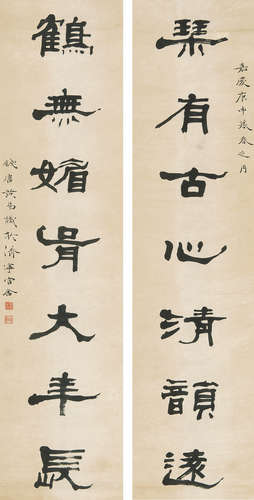 嘉慶庚申春之月
琴有古心清韻遠
鶴無媚骨大年長
錢唐黃易識於濟寧官舍